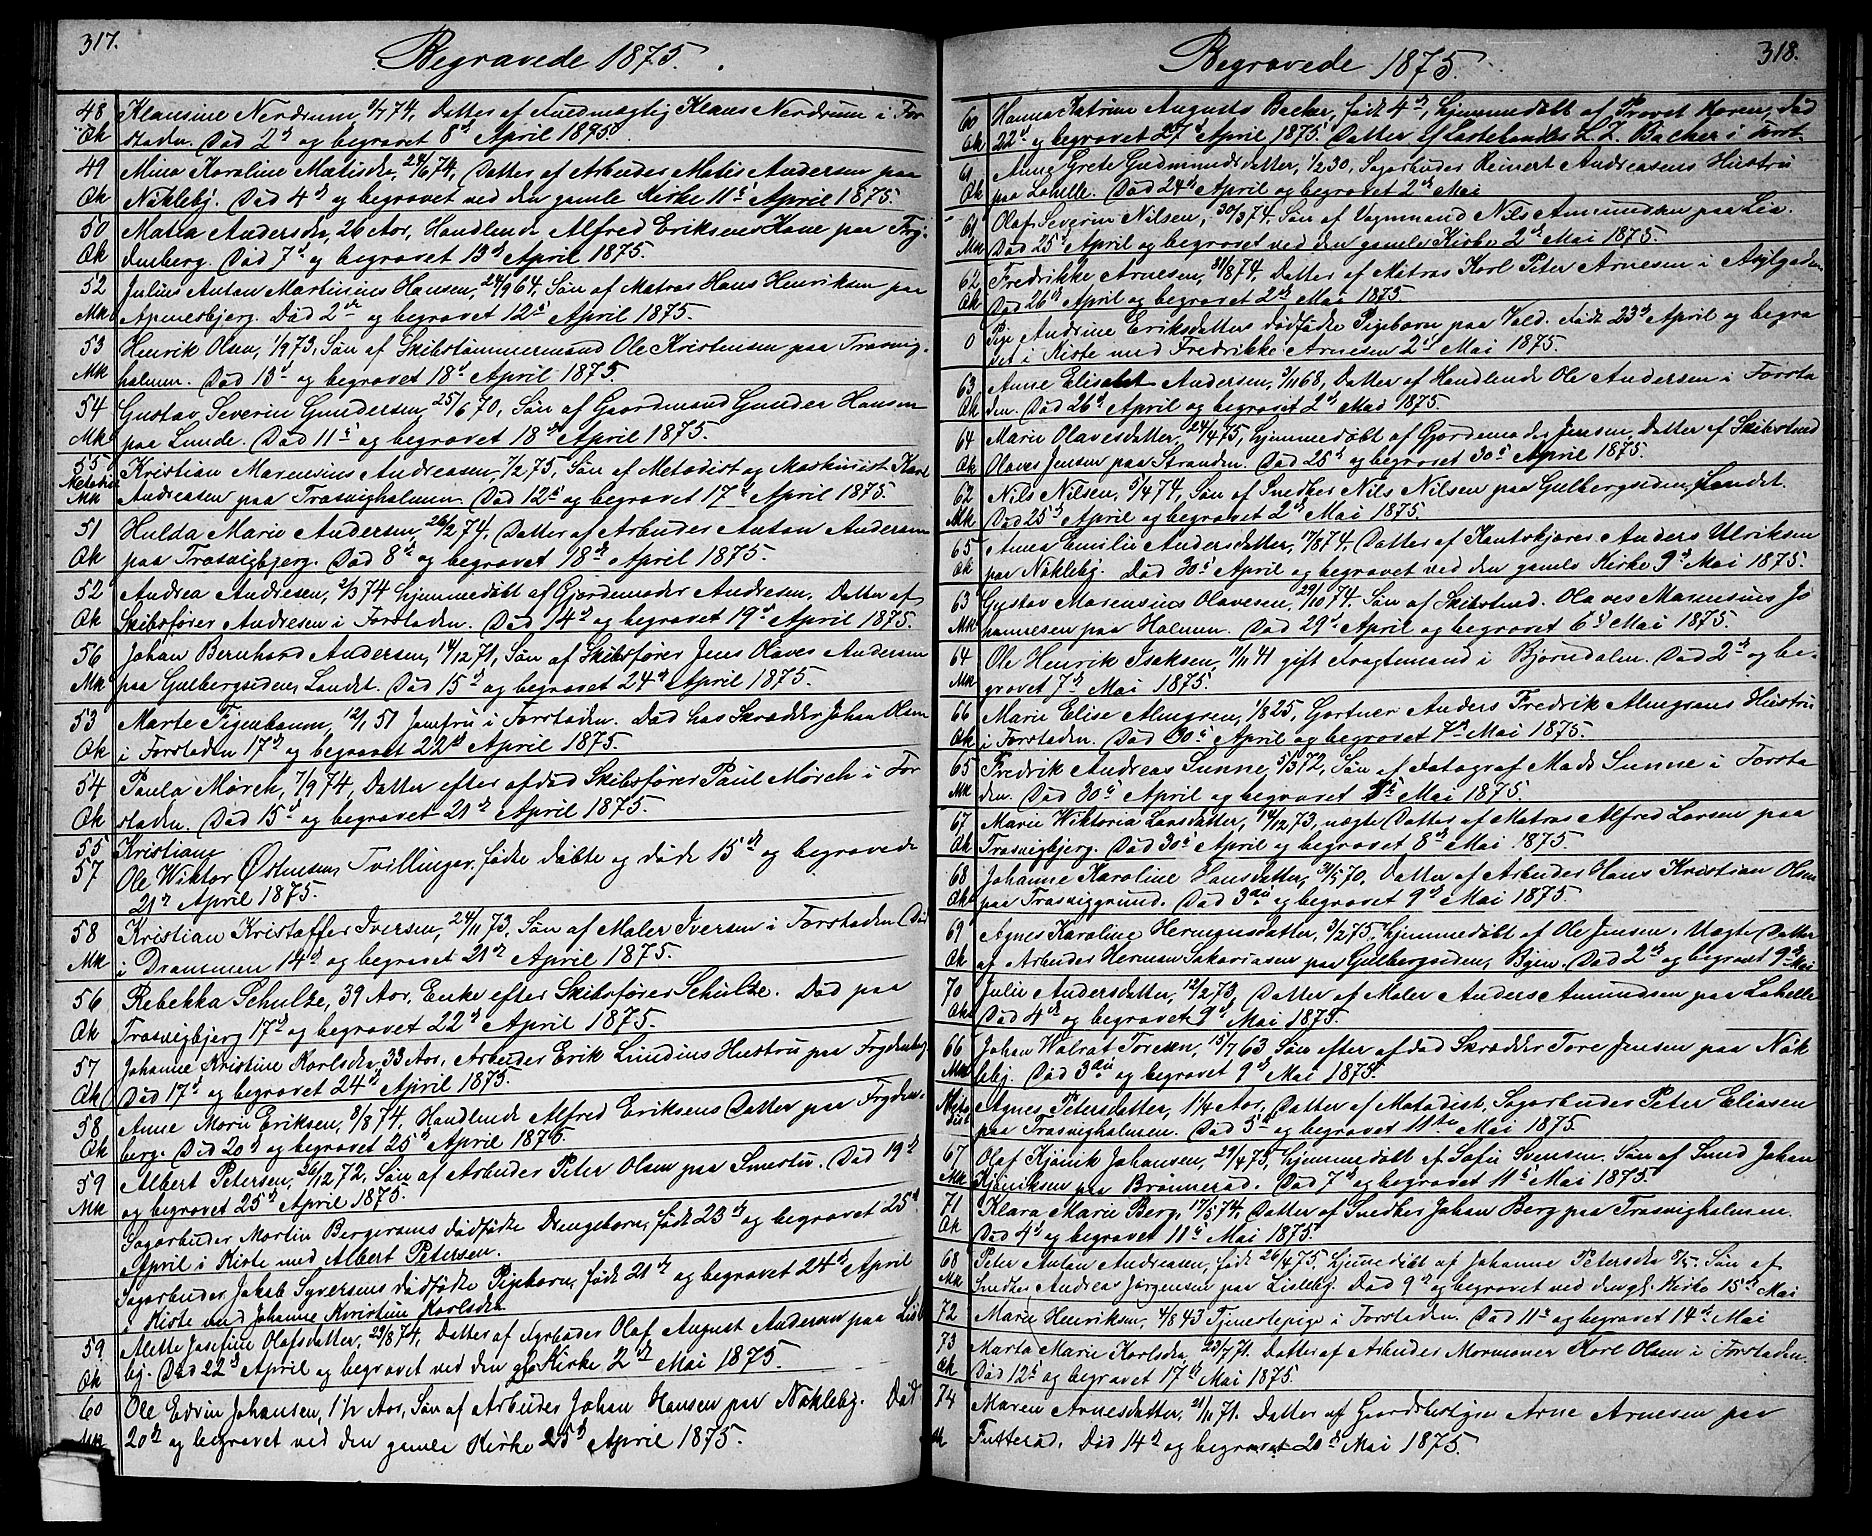 317.
Begravede 1875.
48 Klausine Nerdrum, 9/7 74, Datter af Fuldmægtig Klaus Nerdrum i For-
Qk staden. Død 2d og begravet 8d April 1875
49 Mina Karoline Matisdr, 24/6 74, Datter af Arbeider Matis Andersen paa
Qk Nøkleby. Død 4d og begravet ved den gamle Kirke 11te April 1875.
50 Maria Andersdr, 26 Aar, Handlende Alfred Eriksens Kone paa Fry-
Qk denberg. Død 7d og begravet 13d April 1875.
52 Julius Anton Martinius Hansen, 24/9 64. Søn af Matros Hans Henriksen paa
Mk Apenesbjerg. Død 2de og begravet 12te April 1875.
53 Henrik Olsen, 1/9 73, Søn af Skibstømmermand Ole Kristensen paa Trosvig-
Mk holmen. Død 13d og begravet 18d April 1875.
54 Gustav Severin Gundersen, 25/6 70, Søn af Gaardmand Gunder Hansen
Mk paa Lunde. Død 11te og begravet 18de April 1875.
55 Kristian Marenius Andreasen, 7/2 75, Søn af Metodist og Maskinist Karl
Metodist
Mk Andreasen paa Trosvigholmen. Død 12te og begravet 17d April 1875.
51 Hulda Marie Andersen, 26/2 74, Datter af Arbeider Anton Andersen
Qk paa Trosvigbjerg. Død 8de og begravet 18de April 1875.
52 Andrea Andresen, 2/3 74 hjemmedøbt af Gjordemoder Andresen, Datter af
Qk Skibsfører Andresen i Forstaden. Død 14d og begravet 19d April 1875.
56 Johan Bernhard Andersen, 14/12 71, Søn af Skibsfører Jens Olaves Andersen
Mk paa Gulbergsiden, Landet. Død 15de og begravet 24de April 1875.
53 Marte Tigenbaum, 12/1 51 Jomfru i Forstaden. Død hos Skrædder Johan Olsen
Qk i Forstaden 17de og begravet 22d April 1875.
54 Paula Mørch, 7/9 74, Datter efter afdød Skibsfører Paul Mørch i For
Qk staden. Død 15d og begravet 21de April 1875.
55 Kristiane
57 Ole Wiktor Østensen, Tvillinger, fødte døbte og døde 15de og begravede
21de April 1875.
58 Kristian Kristoffer Iversen, 24/11 73, Søn af Maler Iversen i Forstaden. Død
Mk i Drammen 14d og begravet 21de April 1875.
56 Rebekka Schultze, 39 Aar, Enke efter Skibsfører Schultze. Død paa
Qk Trosvigbjerg 17de og begravet 22de April 1875.
57 Johanne Kristine Karlsdr, 33 Aar, Arbeider Erik Lundins Hustru paa Frydenberg
Qk Død 17d og begravet 24d April 1875.
58 Anne Marie Eriksen, 8/8 74, Handlende Alfred Eriksens Datter paa Fryden-
Qk berg. Død 20d og begravet 25de April 1875.
59 Albert Petersen, 26/12 72, Søn af Arbeider Peter Olsen paa Smertu. Død 19de
Mk og begravet 25de April 1875.
Sagarbeider Martin Bergersens dødfødte Drengebarn, født 23de og begravet 25de
April i Kiste med Albert Petersen.
Sagarbeider Jakob Syversens dødfødte Pigebarn, født 21de og begravet 24de April
i Kiste med Johanne Kristine Karlsdr
59 Alette Josefine Olafsdatter, 29/8 74, Datter af Arbeider Olaf August Andersen paa Lisle
Qk bj. Død 22d April og begravet ved den gl. Kirke 2de Mai 1875.
60 Ole Edvin Johansen, 1½ Aar, Søn af Arbeider Johan Hansen paa Nøkleby. Død
Mk 20de og begravet ved den gamle Kirke 25de April 1875.
318.
Begravede 1875.
60 Hanna Katrine Augusta Backer, født 4de, hjemmedøbt af Provst Horen, død
Qk 22d og begravet 27d April 1875. Datter af L. Z. Backer i Forst.
61 Anne Grete Gudmundsdatter, 1/2 30, Sagarbeider Reinert Andreasens Hustru
Qk paa Lahelle. Død 24de April og begravet 2de Mai
61 Olaf Severin Nilsen, 30/3 74, Søn af Vognmand Nils Amundsen paa Lia.
Mk Død 25d April og begravet ved den gamle Kirke 2de Mai 1875.
62 Fredrikke Arnesen, 31/8 74, Datter af Matros Karl Peter Arnesen i
Qk Død 26de April og begravet 2de Mai 1875
0 Pige Andrine Eriksdatters dødfødte Pigebarn paa Vold. Født 23de April og begra
vet i Kiste med Fredrikke Arnesen 2d Mai 1875.
63 Anne Elisabet Andersen, 3/11 68, Datter af Handlende Ole Andersen i Forsta
Qk den. Død 26d April og begravet 2de Mai 1875.
64 Marie Olavesdatter, 24/4 75, hjemmedøbt af Gjordemoder Jensen, Datter af Skibstmd
Qk Olaves Jensen paa Stranden. Død 25de og begravet 30te April 1875.
62 Nils Nilsen, 5/4 74, Søn af Snedker Nils Nilsen paa Gulbergsiden, Landet.
Mk Død 25de April og begravet 2de Mai 1875.
65 Anna Emilie Andersdatter, 17/8 74. Datter af Anders Ulriksen
Qk paa Nøkleby. Død 30te April og begravet ved den gamle Kirke 9d Mai 1875.
63 Gustav Marensius Olavesen, 29/10 74. Søn af Skibstmd. Olaves Marensius Jo
Mk hannesen paa Holmen. Død 29d April og begravet 6d Mai 1875.
64 Ole Henrik Isaksen, 11/11 41 gift Fragtemand i Bjørndalen. Død 2de og be-
Mk gravet 7de Mai 1875.
66 Marie Elise Almgren, 1/8 25, Gartner Anders Fredrik Almgrens Hustru
Qk i Forstaden. Død 30te April og begravet 7de Mai 1875.
65 Fredrik Andreas Sunne, 5/3 72, Søn af Fotograf Mads Sunne i Forsta
Mk den. Død 30te April og begravet Mai 1875.
67 Marie Wiktoria Larsdatter, 14/12 73, uægte Datter af Matros Alfred Larsen paa
Qk Trosvigbjerg. Død 30te April og begravet 8de Mai 1875.
68 Johanne Karoline Hansdatter, 31/5 70, Datter af Arbeider Hans Kristian Olsen
Qk paa Trosviggrund. Død 3die og begravet 9de Mai 1875.
69 Agnes Karoline Hermansdatter, 3/2 75, hjemmedøbt af Ole Jensen. Uægte Datter
Qk af Arbeider Herman Sakariasen paa Gulbergsiden, Byen. Død 2de og begravet 9de Mai
70 Julie Andersdatter, 12/2 73, Datter af Maler Anders Amundsen paa Lahelle
Qk Død 4de og begravet 9d Mai 1875.
66 Johan Walrat Toresen, 15/7 63 Søn efter afdød Skrædder Tore Jensen paa Nøk
Mk leby. Død 3die og begravet 9de Mai 1875.
Meto Agnes Petersdatter, 1¼ Aar, Datter af Metodist, Sagarbeider Peter Eliasen
dist paa Trosvigholmen. Død 5d og begravet 11te Mai 1875.
67 Olaf Kjønik Johansen, 29/4 75, hjemmedøbt af Sofie Svensen. Søn af Smed Johan
Mk Kjøniksen paa Brønnerød. Død 7de og begravet 11te Mai 1875.
71 Klara Marie Berg, 17/5 74, Datter af Snedker Johan Berg paa Trosvigholmen.
Qk Død 4d og begravet 11te Mai 1875.
68 Peter Anton Andreasen, født 26/4 75, hjemmedøbt af Johanne Petersdr 8/5. Søn af
Mk Snedker Andreas Jørgensen paa Lisleby. Død 9de og begravet ved den gl. Kirke 15de Mai
72 Marie Henriksen, 4/8 43 Tjenestepige i Forstaden. Død 11te og begravet 14de Mai
73 Marta Marie Karlsdr, 23/7 71. Datter af Arbeider Mormoner Karl Olsen i Forstaden.
Qk Død 12te og begravet 17de Mai 1875.
74 Maren Arnesdatter, 21/11 71. Datter af Gaardbestyrer Arne Arnesen paa
Qk Tutterød. Død 14de og begravet 20de Mai 1875.